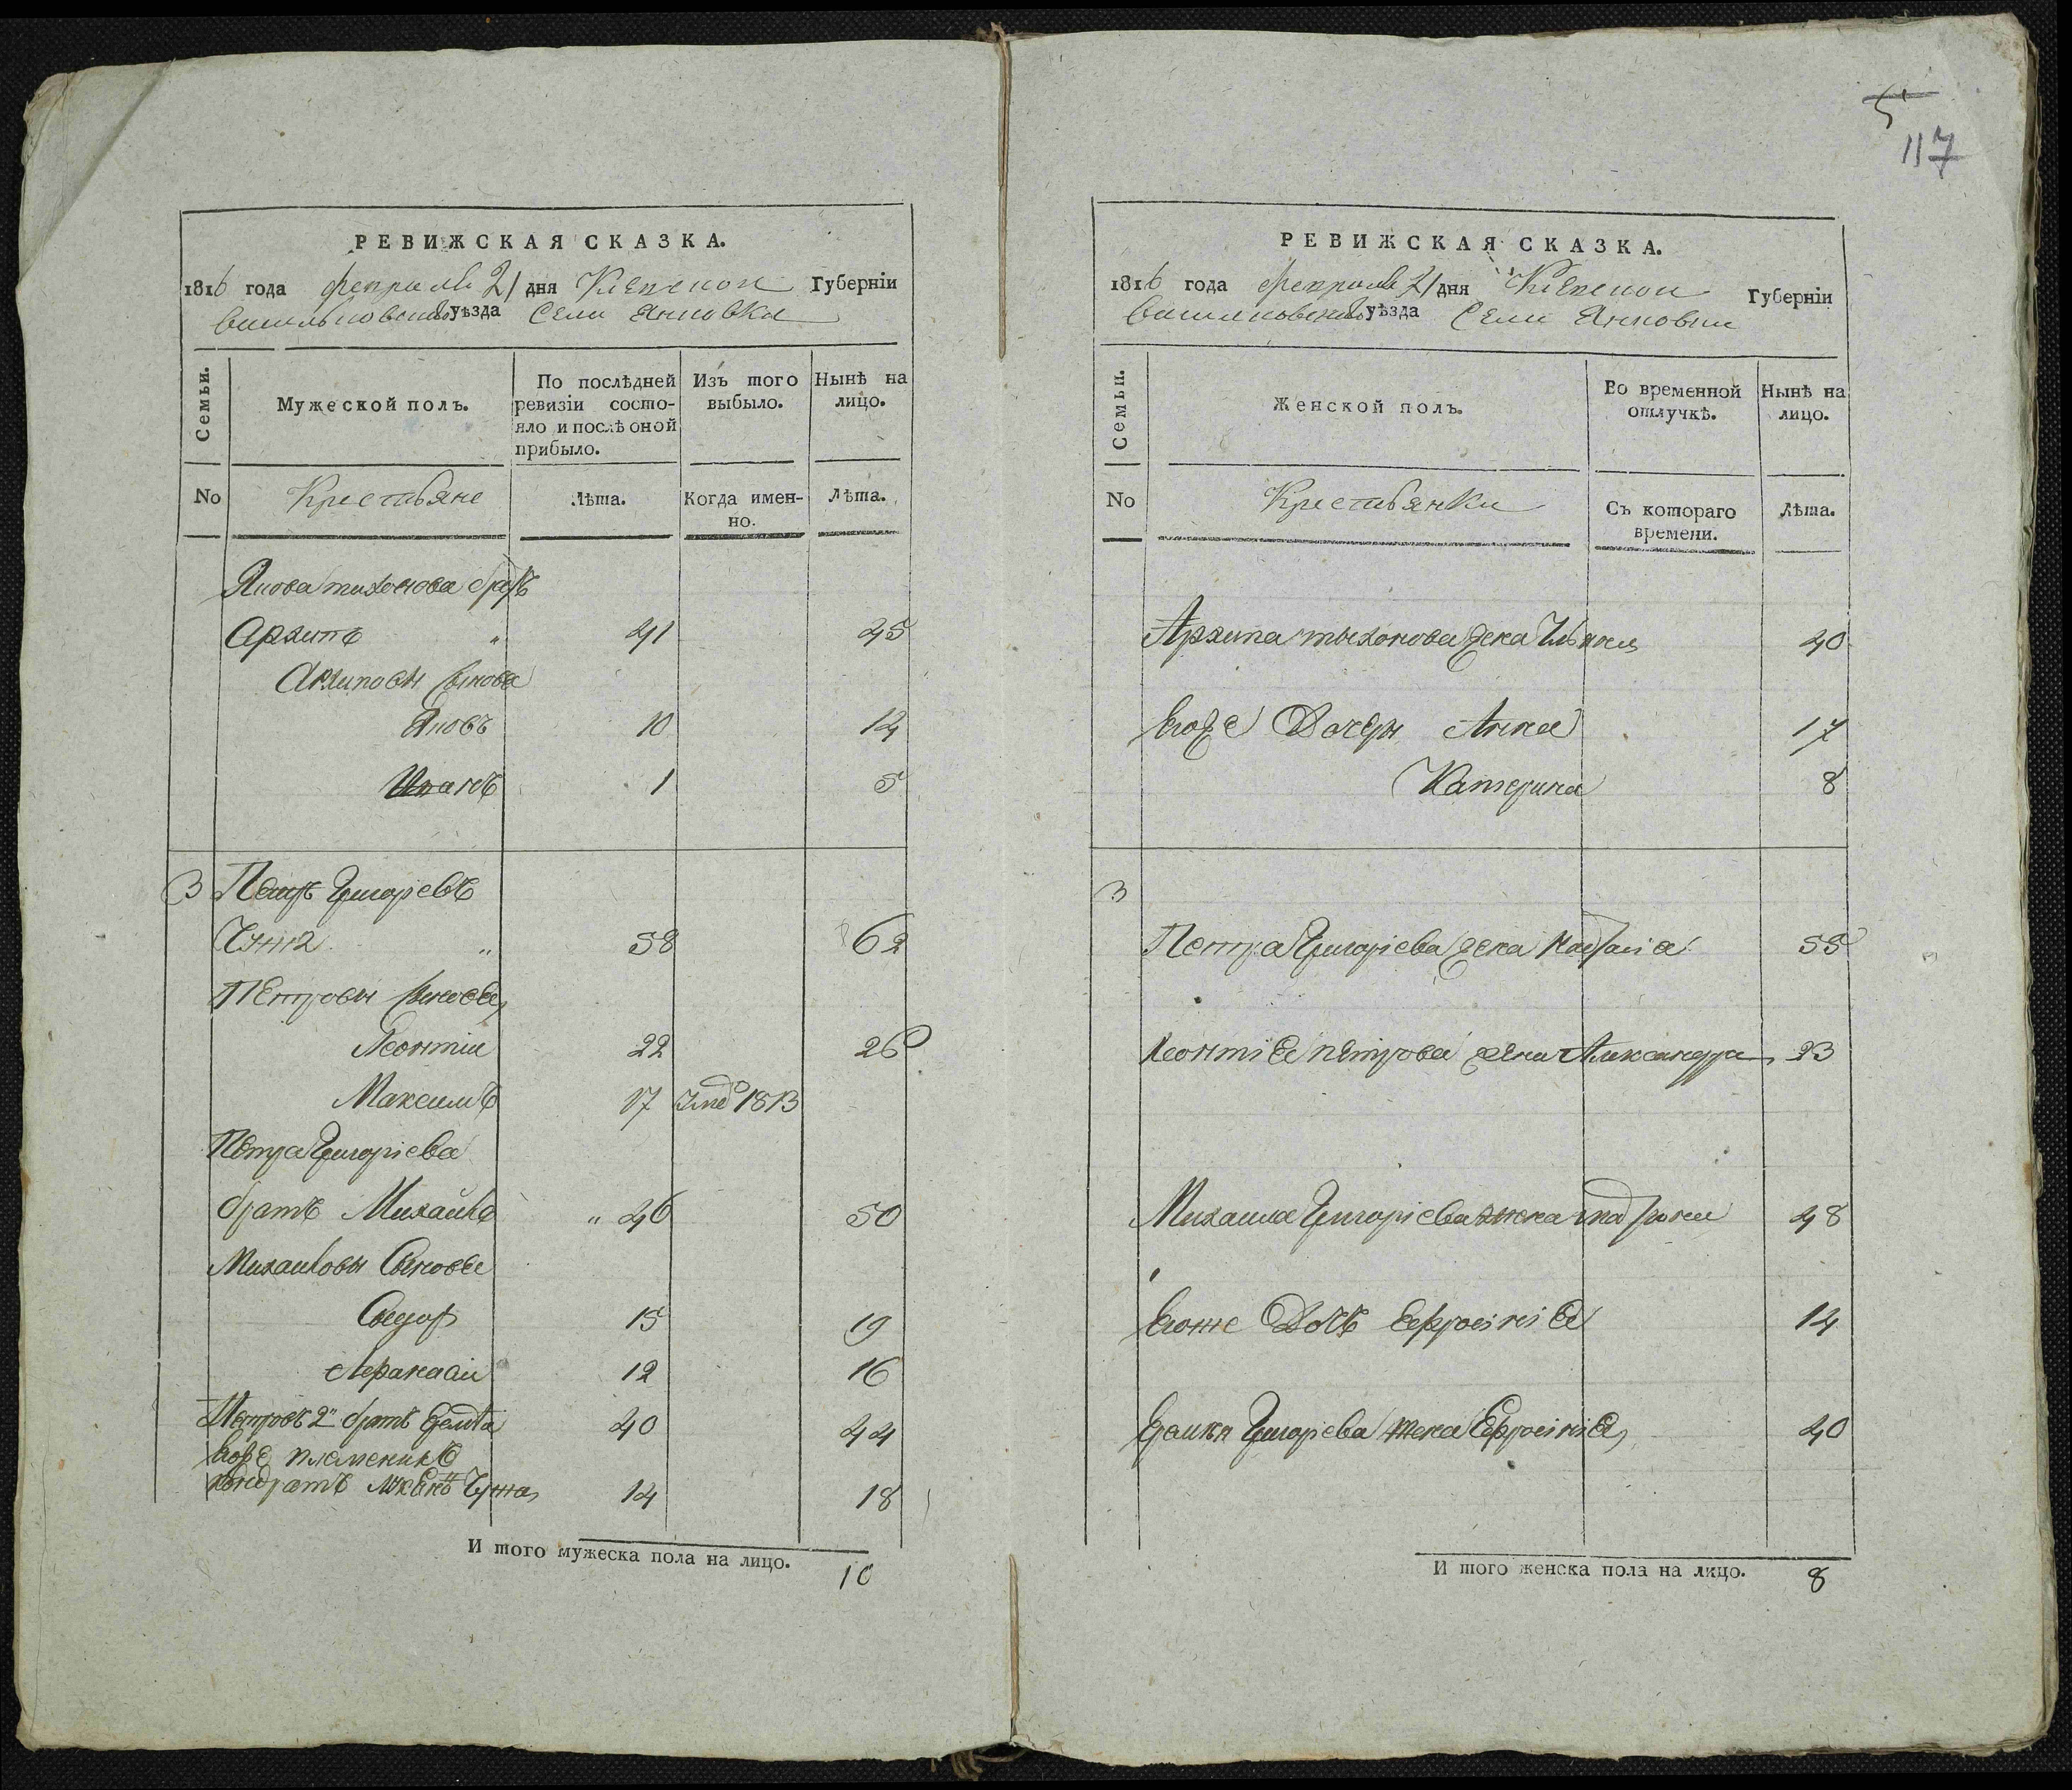 5
117
РЕВИЖСКАЯ СКАЗКА.
1816 года февраля 21 дня Киевской Губерніи
Васильковского уѣзда Села Яновки
Семьи.
Мужеской полъ.
По послѣдней ревизіи состояло и послѣ оной прибыло.
Изъ того выбыло.
Нынѣ на лицо.
No
Крестьяне
Лѣта.
Когда именно.
Лѣта.
Якова тихонова братъ
Архипъ " 41 45
Архиповы сынове
Яковъ 10 14
Игнатъ 1 5
3 Петръ Григорьевъ
58 62
Петровы сынове
Леонтіи 22 26
Максимъ 17 1813
Петра Григоріева
братъ Михайло " 46 50
Михайловы Сынове
Сидор 15 19
Афанасіи 12 16
Петровъ 2й братъ 40 44
Егоже племенникъ
Кондратъ 14 18
И того мужеска пола на лицо. 10
РЕВИЖСКАЯ СКАЗКА.
1816 года февраля 21 дня Киевской Губерніи
Васильковского уѣзда Села Яновки
Семьи.
Женской полъ.
Во временной отлучкѣ.
Нынѣ на лицо.
No
Крестьянки
Съ котораго времени.
Лѣта.
Архипа тихонова жена 40
Егоже Дочеры Анна 17
Катерина 8
3
Петра Григоріева жена Настасіа 55
Леонтіа петрова жена Александра 23
Михаила Григоріева жена 48
Егоже Дочь Ефросиніа 14
Григоріева жена Ефросиніа 40
И того женска пола на лицо. 8